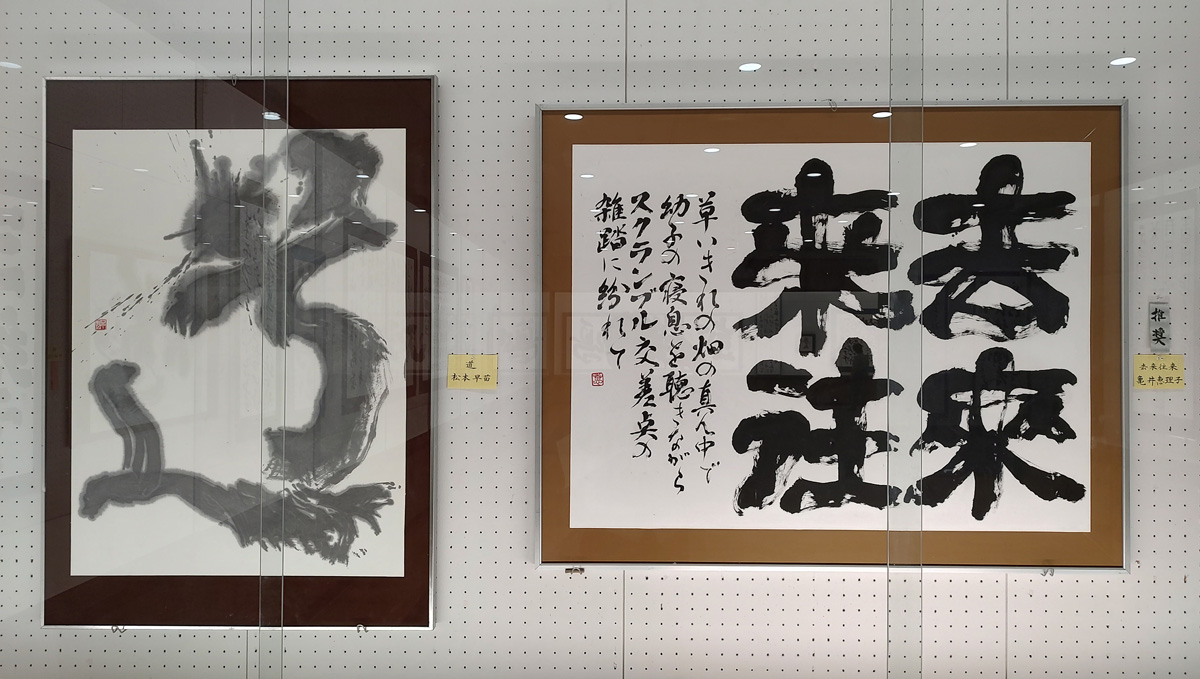 道
道
松本早苗
去來
来往
草いきれの畑の真ん中で
幼子の寝息を聴きながら
スクランブル交差点の
雑踏に紛れて
推奨
去来往来
亀井恵理子